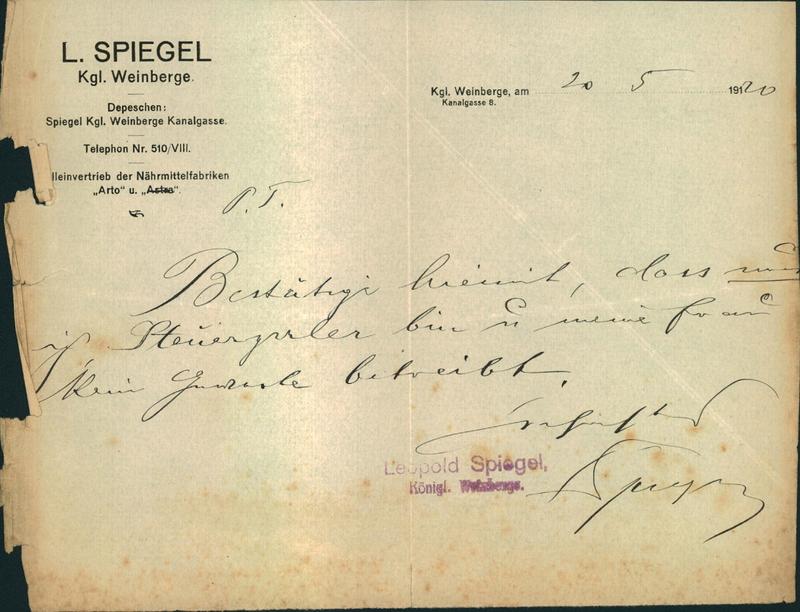 L. SPIEGEL
Kgl. Weinberge.
Depeschen:
Spiegel Kgl. Weinberge Kanalgasse.
Telephon Nr. 510/VIII.
lleinvertrieb der Nährmittelfabriken
„Arto" u. „Astra".
Kgl. Weinberge, am 20 5 1920
Kanalgasse 8.
P. T.
Bestätige hiemit, dass nur
ich Steuerzaler bin u meine Frau
kein Gewerbe betreibt.
Leopold Spiegel,
Königl. Weinberge.
Spiegel